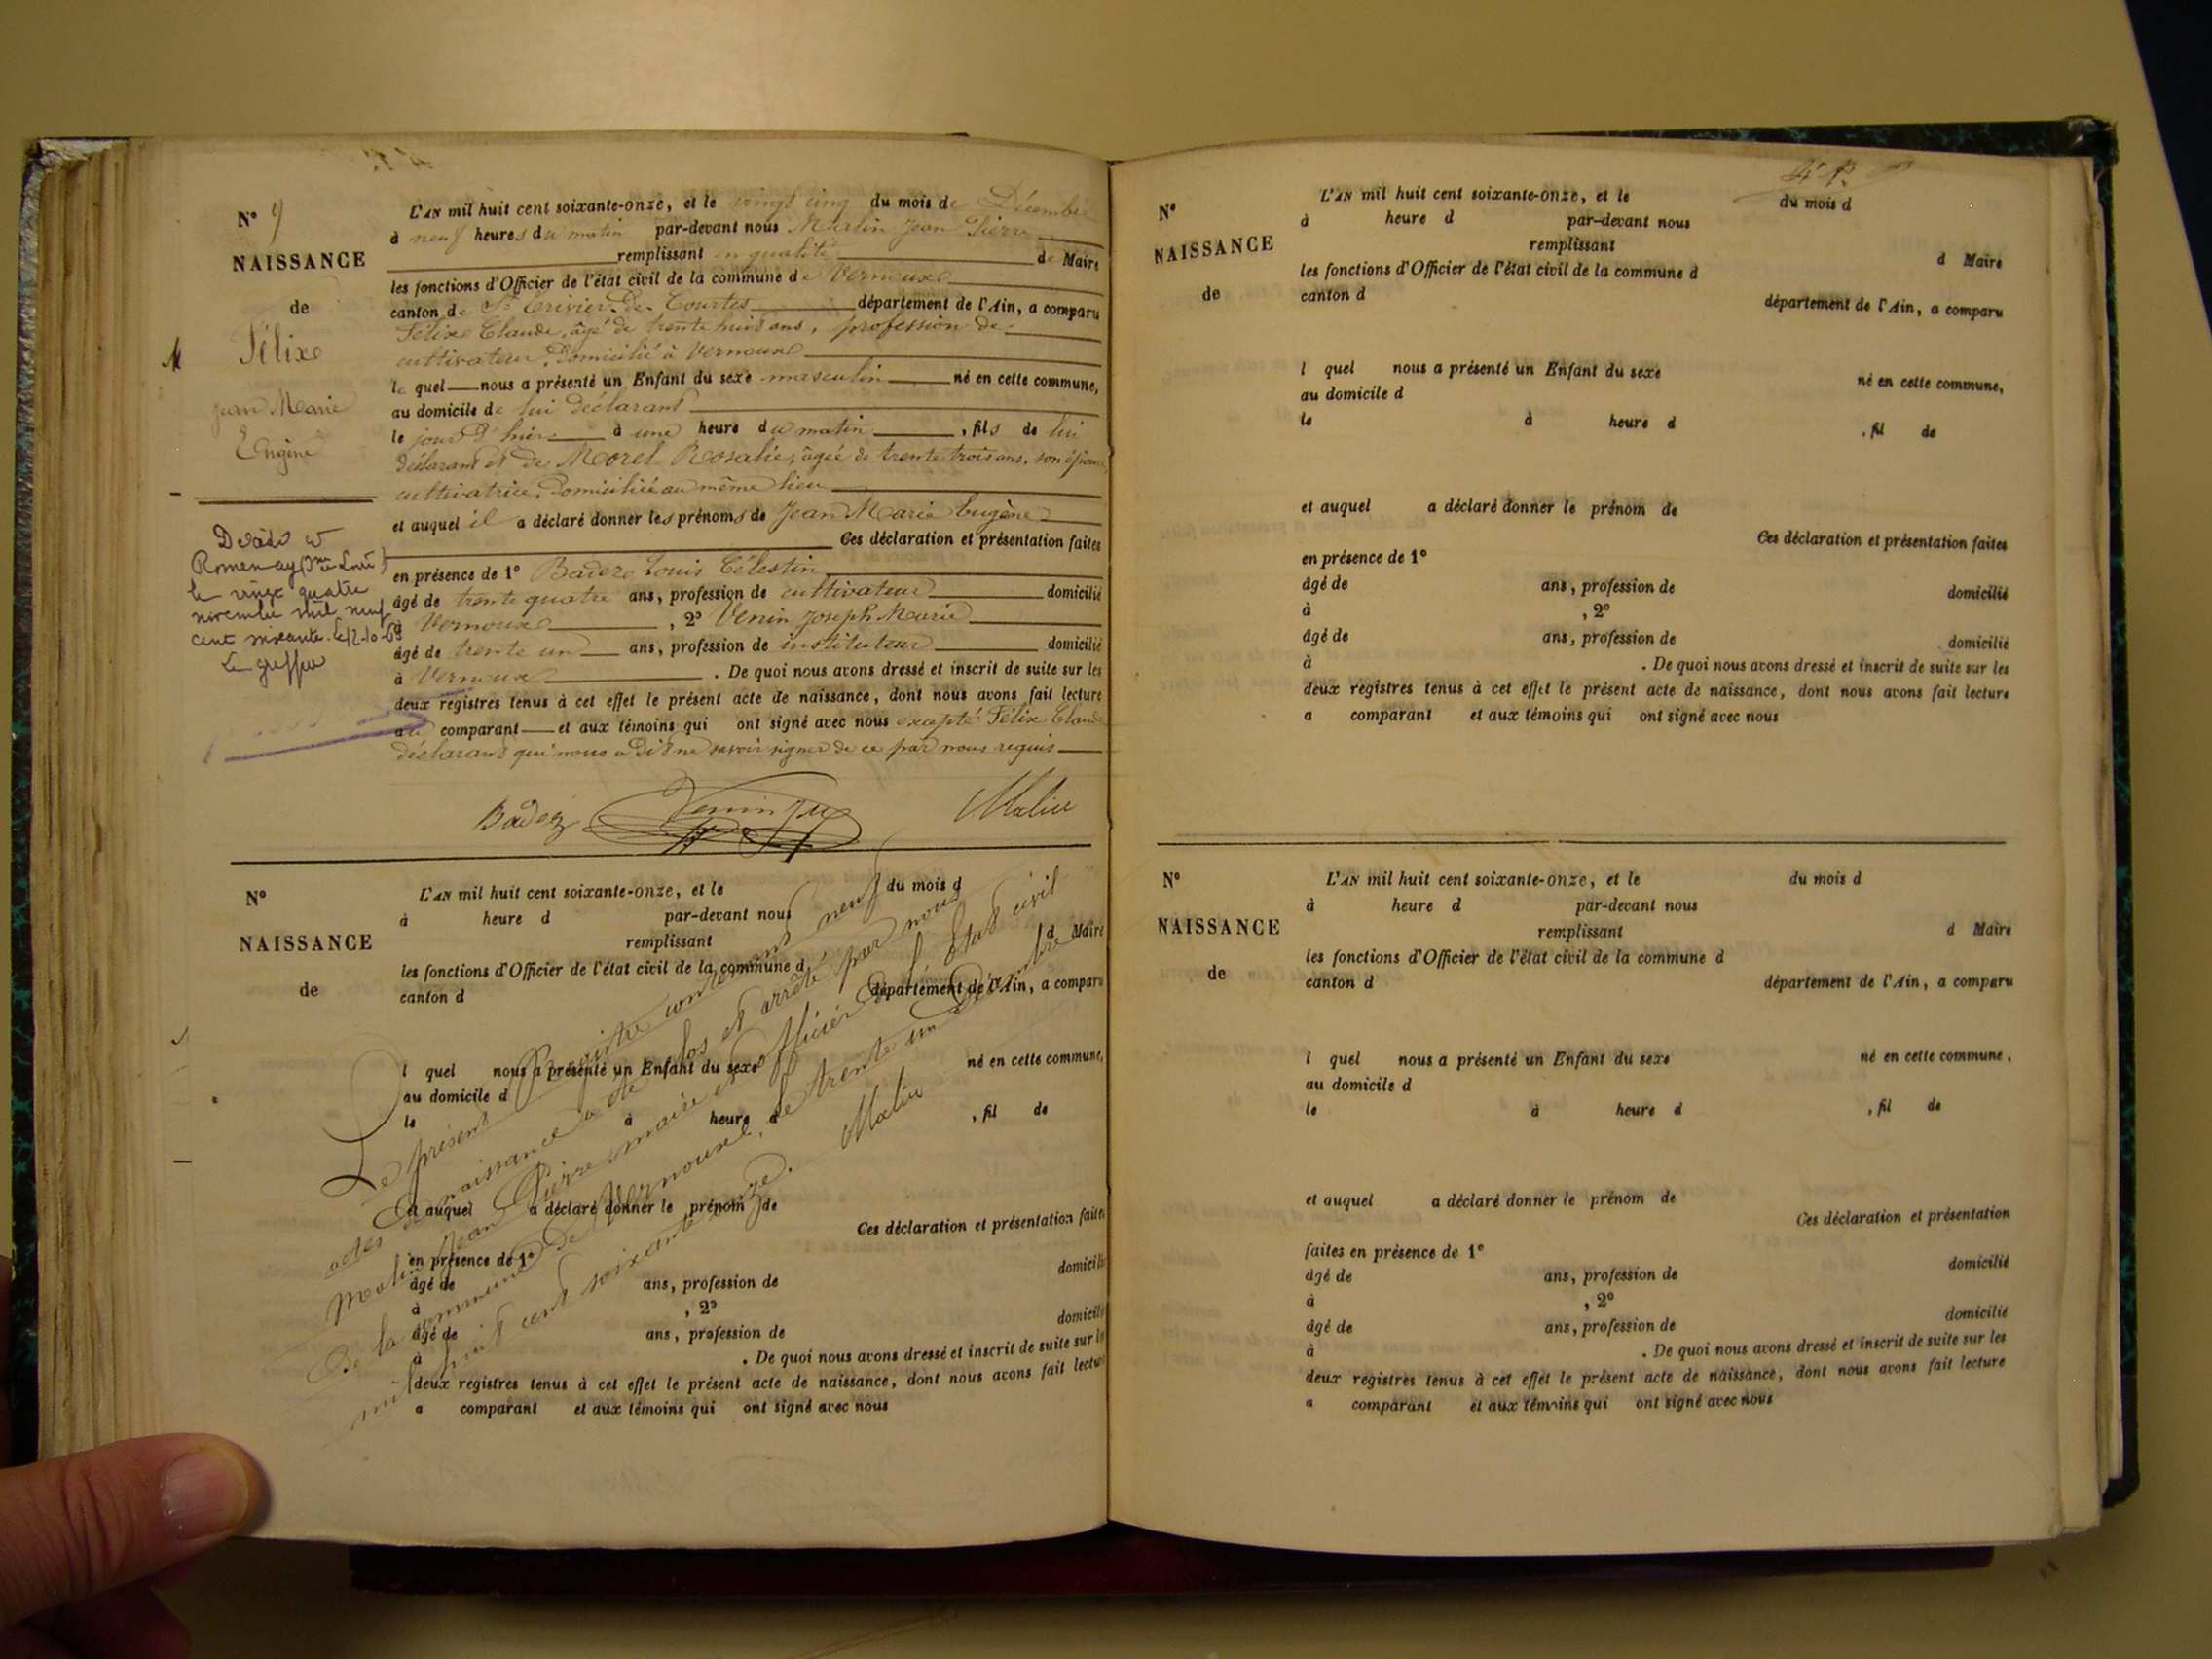 N° 9
NAISSANCE
de
Félix
Jean Marie
Eugène
Décédé à
Romenay (Sne et Loire)
le vingt quatre
novembre mil neuf
cent soixante. Le 12-10-63
Le greffier
L'AN mil huit cent soixante-onze, et le vingt cinq du mois de Décembre
à neuf heures du matin par-devant nous Malin Jean Pierre
remplissant en qualité de Maire
les fonctions d'Officier de l'état civil de la commune de Vernoux
canton de St Trivier-de-Courtes département de l'Ain, a comparu
Félix Claude, âgé de trente huit ans, profession de
cultivateur, domicilié à Vernoux
lequel nous a présenté un Enfant du sexe masculin né en cette commune,
au domicile de lui déclarant
le jour d'hier à une heure du matin, fils de lui
déclarant et de Morel Rosalie, âgée de trente trois ans, son épouse,
cultivatrice, domiciliée au même lieu
et auquel il a déclaré donner les prénoms de Jean Marie Eugène
Ces déclaration et présentation faites
en présence de 1° Badez Louis Célestin
âgé de trente quatre ans, profession de cultivateur domicilié
à Vernoux, 2° Venin Joseph Marie
âgé de trente un ans, profession de instituteur domicilié
à Vernoux. De quoi nous avons dressé et inscrit de suite sur les
deux registres tenus à cet effet le présent acte de naissance, dont nous avons fait lecture
au comparant et aux témoins qui ont signé avec nous excepté Félix Claude
déclarant qui nous a dit ne savoir signer de ce par nous requis
Badez Venin Malin
N°
NAISSANCE
de
L'AN mil huit cent soixante-onze, et le du mois d
à heure d par-devant nous
remplissant d Maire
les fonctions d'Officier de l'état civil de la commune d
canton d département de l'Ain, a comparu
l quel nous a présenté un Enfant du sexe né en cette commune,
au domicile d
le à heure d , fil de
et auquel a déclaré donner le prénom de
Ces déclaration et présentation faites
en présence de 1°
âgé de ans, profession de domicilié
à , 2°
âgé de ans, profession de domicilié
à . De quoi nous avons dressé et inscrit de suite sur les
deux registres tenus à cet effet le présent acte de naissance, dont nous avons fait lecture
a comparant et aux témoins qui ont signé avec nous
Le présent Registre contenant neuf
actes de naissance a été clos et arrêté par nous
Malin Jean Pierre maire et officier de l'état civil
de la commune de Vernoux, le trente un Décembre
mil huit cent soixante onze. Malin
N°
NAISSANCE
de
L'AN mil huit cent soixante-onze, et le du mois d
à heure d par-devant nous
remplissant d Maire
les fonctions d'Officier de l'état civil de la commune d
canton d département de l'Ain, a comparu
l quel nous a présenté un Enfant du sexe né en cette commune,
au domicile d
le à heure d , fil de
et auquel a déclaré donner le prénom de
Ces déclaration et présentation faites
en présence de 1°
âgé de ans, profession de domicilié
à , 2°
âgé de ans, profession de domicilié
à . De quoi nous avons dressé et inscrit de suite sur les
deux registres tenus à cet effet le présent acte de naissance, dont nous avons fait lecture
a comparant et aux témoins qui ont signé avec nous
N°
NAISSANCE
de
L'AN mil huit cent soixante-onze, et le du mois d
à heure d par-devant nous
remplissant d Maire
les fonctions d'Officier de l'état civil de la commune d
canton d département de l'Ain, a comparu
l quel nous a présenté un Enfant du sexe né en cette commune,
au domicile d
le à heure d , fil de
et auquel a déclaré donner le prénom de
Ces déclaration et présentation
faites en présence de 1°
âgé de ans, profession de domicilié
à , 2°
âgé de ans, profession de domicilié
à . De quoi nous avons dressé et inscrit de suite sur les
deux registres tenus à cet effet le présent acte de naissance, dont nous avons fait lecture
a comparant et aux témoins qui ont signé avec nous